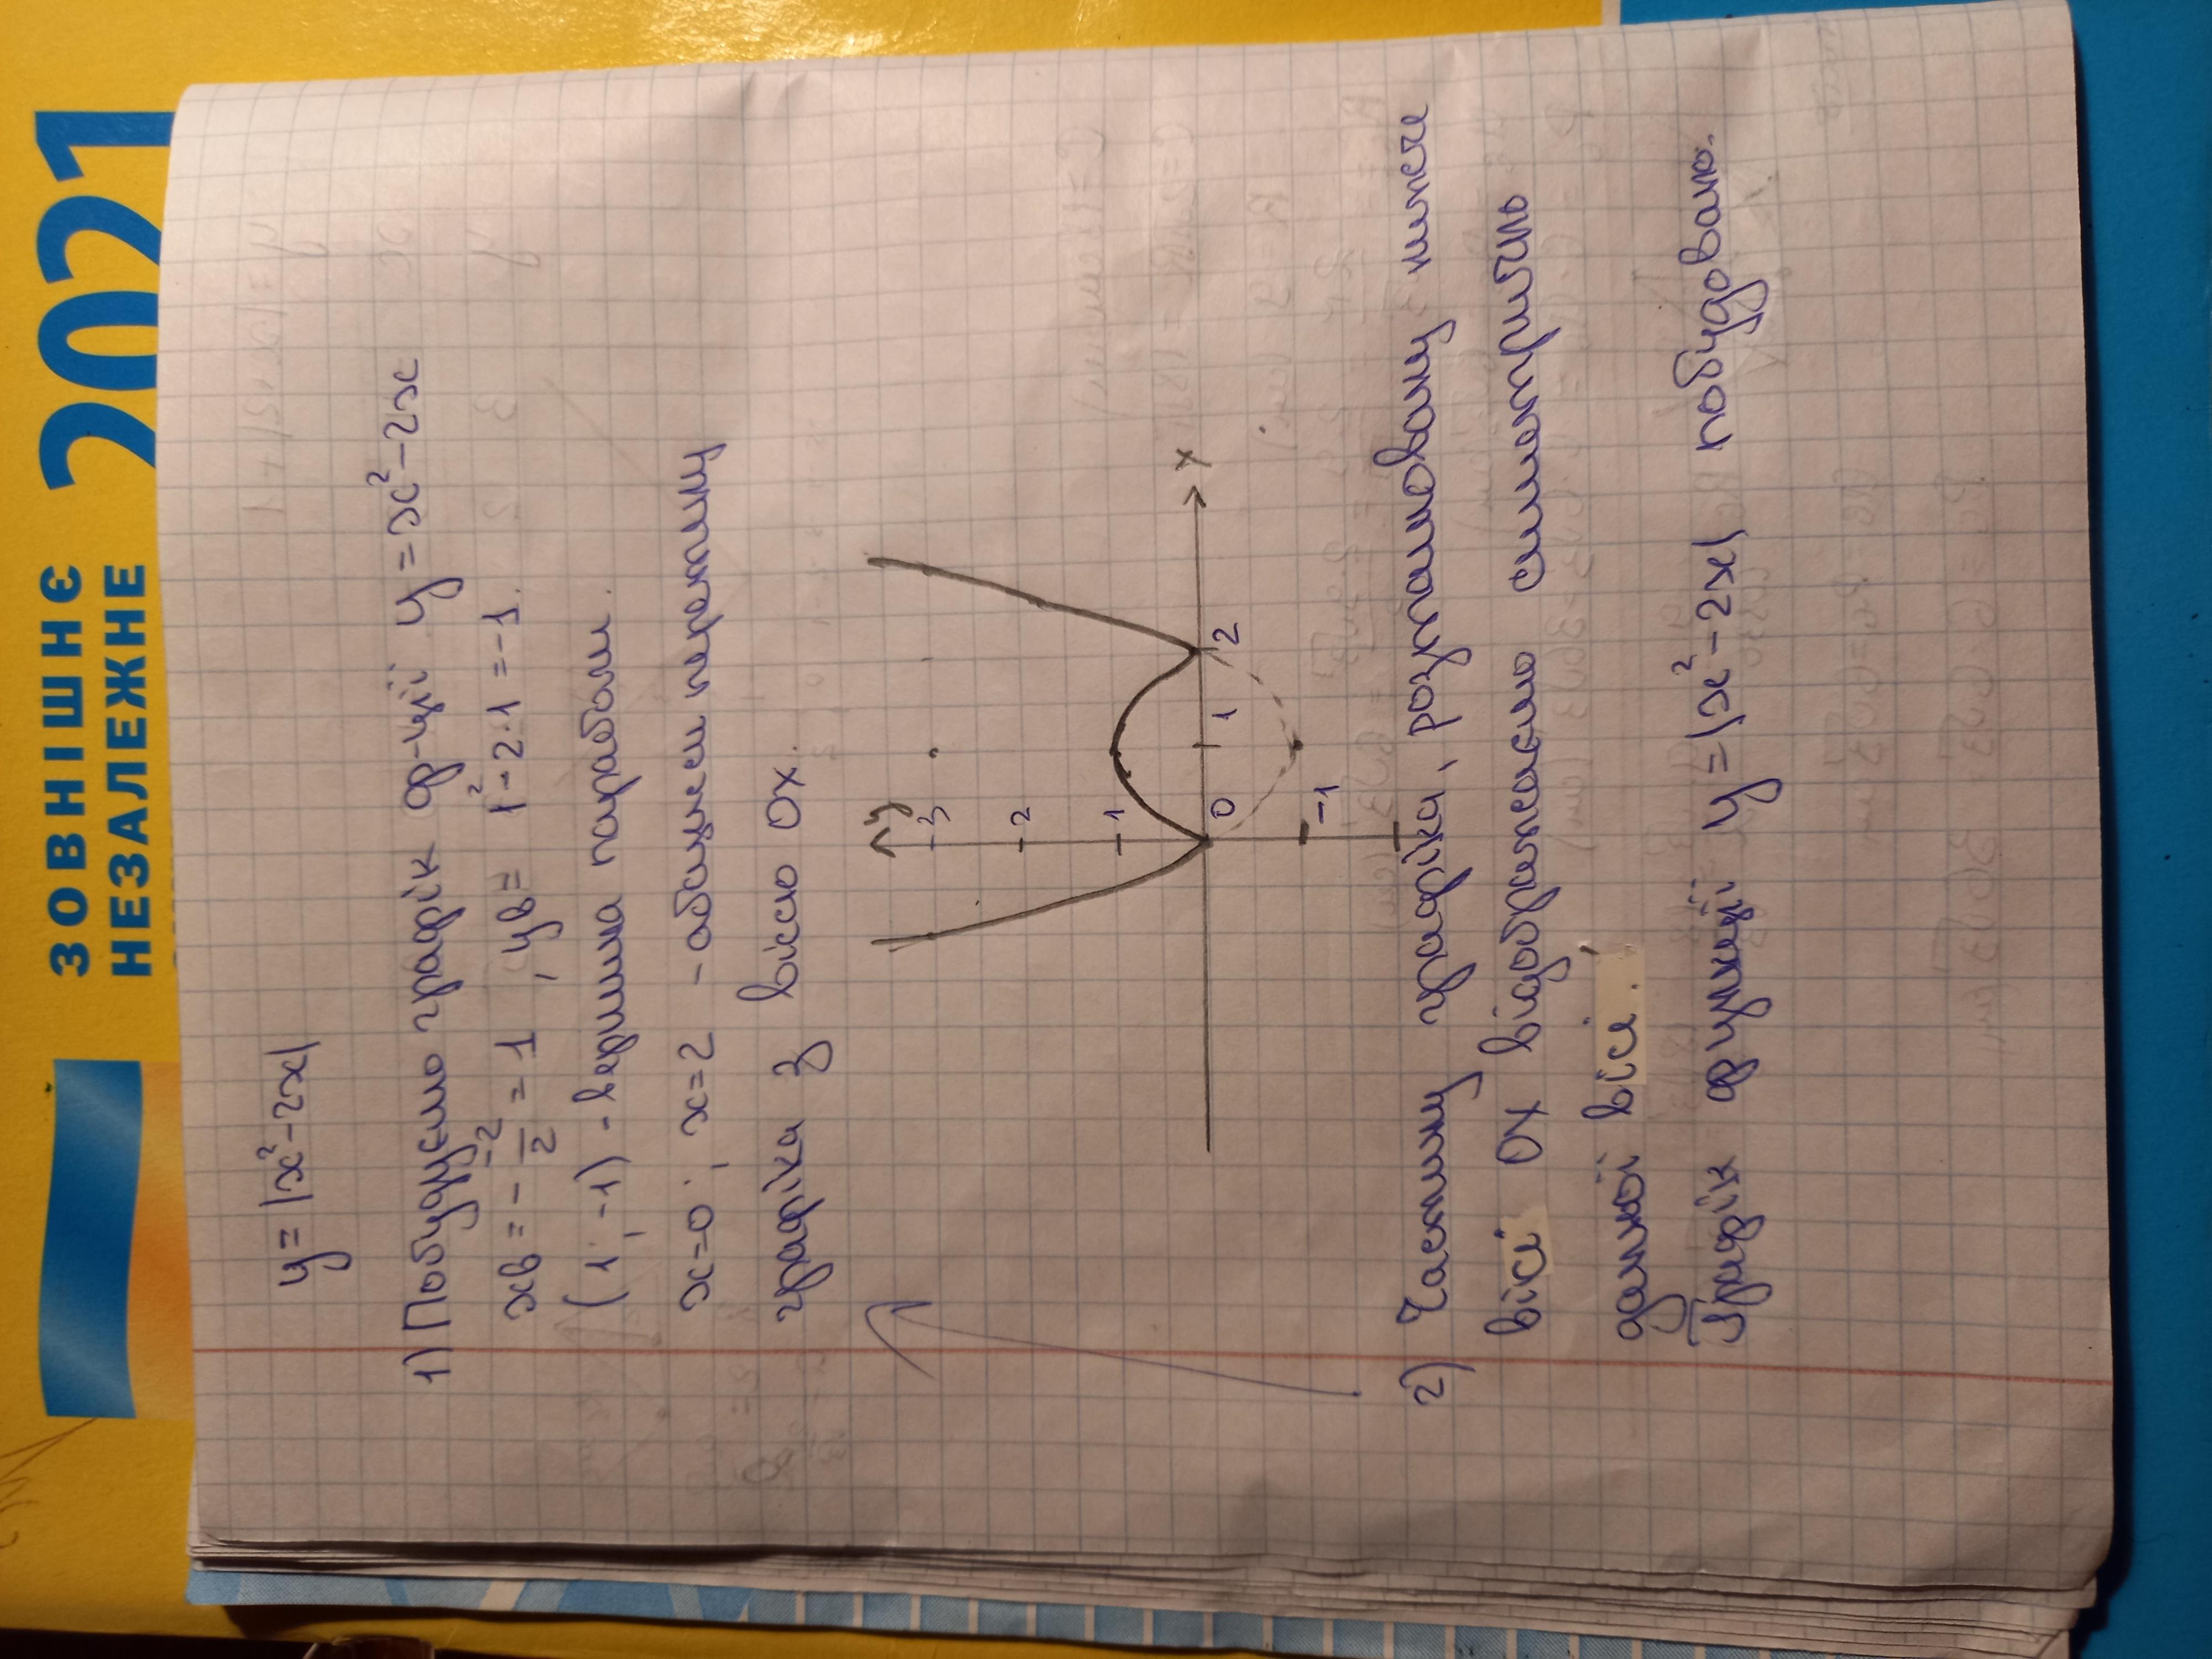 ЗОВНІШНЄ
НЕЗАЛЕЖНЕ
2021
y = |x²-2x|
1) Побудуємо графік ф-ції y = x²-2x
xв = - -2/2 = 1 , yв = 1²-2·1 = -1.
(1; -1) - вершина параболи.
x=0; x=2 - абсциси перетину
графіка з вісю Ox.
y
3
2
1
0
1
2
x
-1
2) Частину графіка, розташовану нижче
вісі Ox відображаємо симетрично
даної вісі.
Графік функції y = |x²-2x| побудовано.